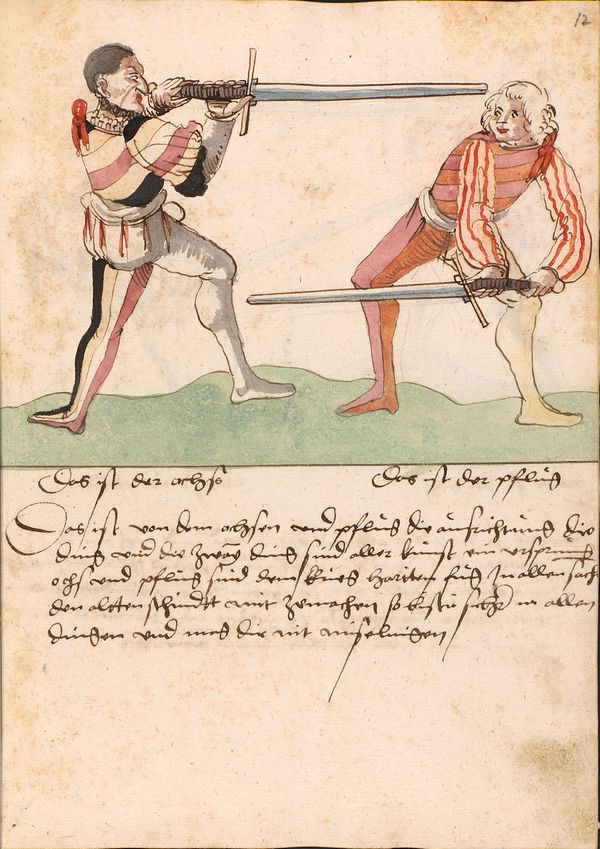 12
Das ist der ochß
Das ist der pflug
Das ist von dem ochsen und pflug die aufrichtung die
ding und die zway ding sind aller kunst ein ursprung
ochß und pflug sind dem krieg hartten fug In allen sach
den altten schnidtt mit zumachen so bistu sicher in allen
dingen und mag dir nit miselingen